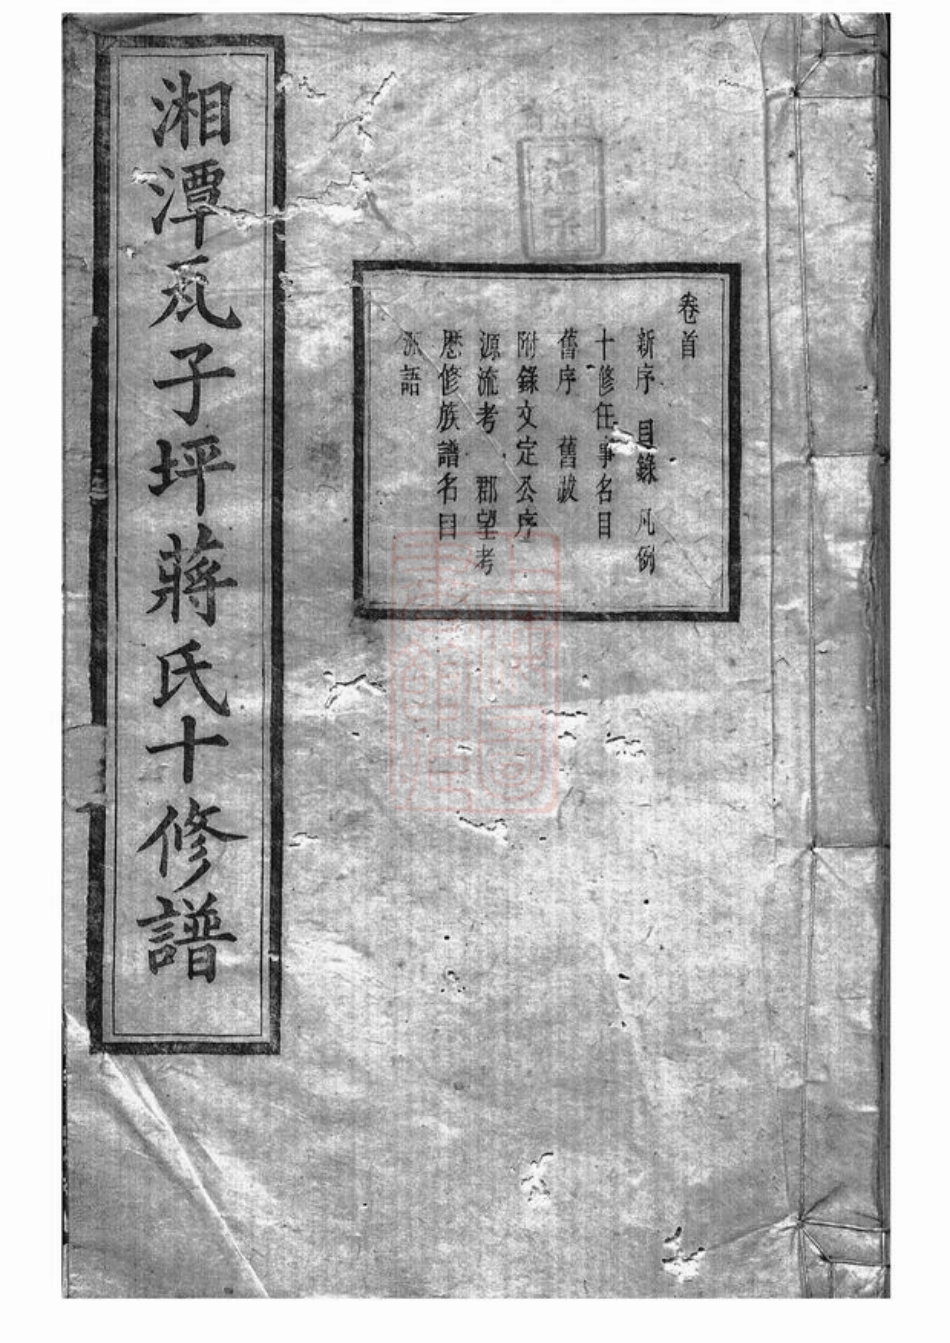 卷首
新序 目錄 凡例
十修任事名目
舊序 舊跋
附錄文定公序
源流考 郡望考
歷修族譜名目
派語
湘潭瓦子坪蔣氏十修譜